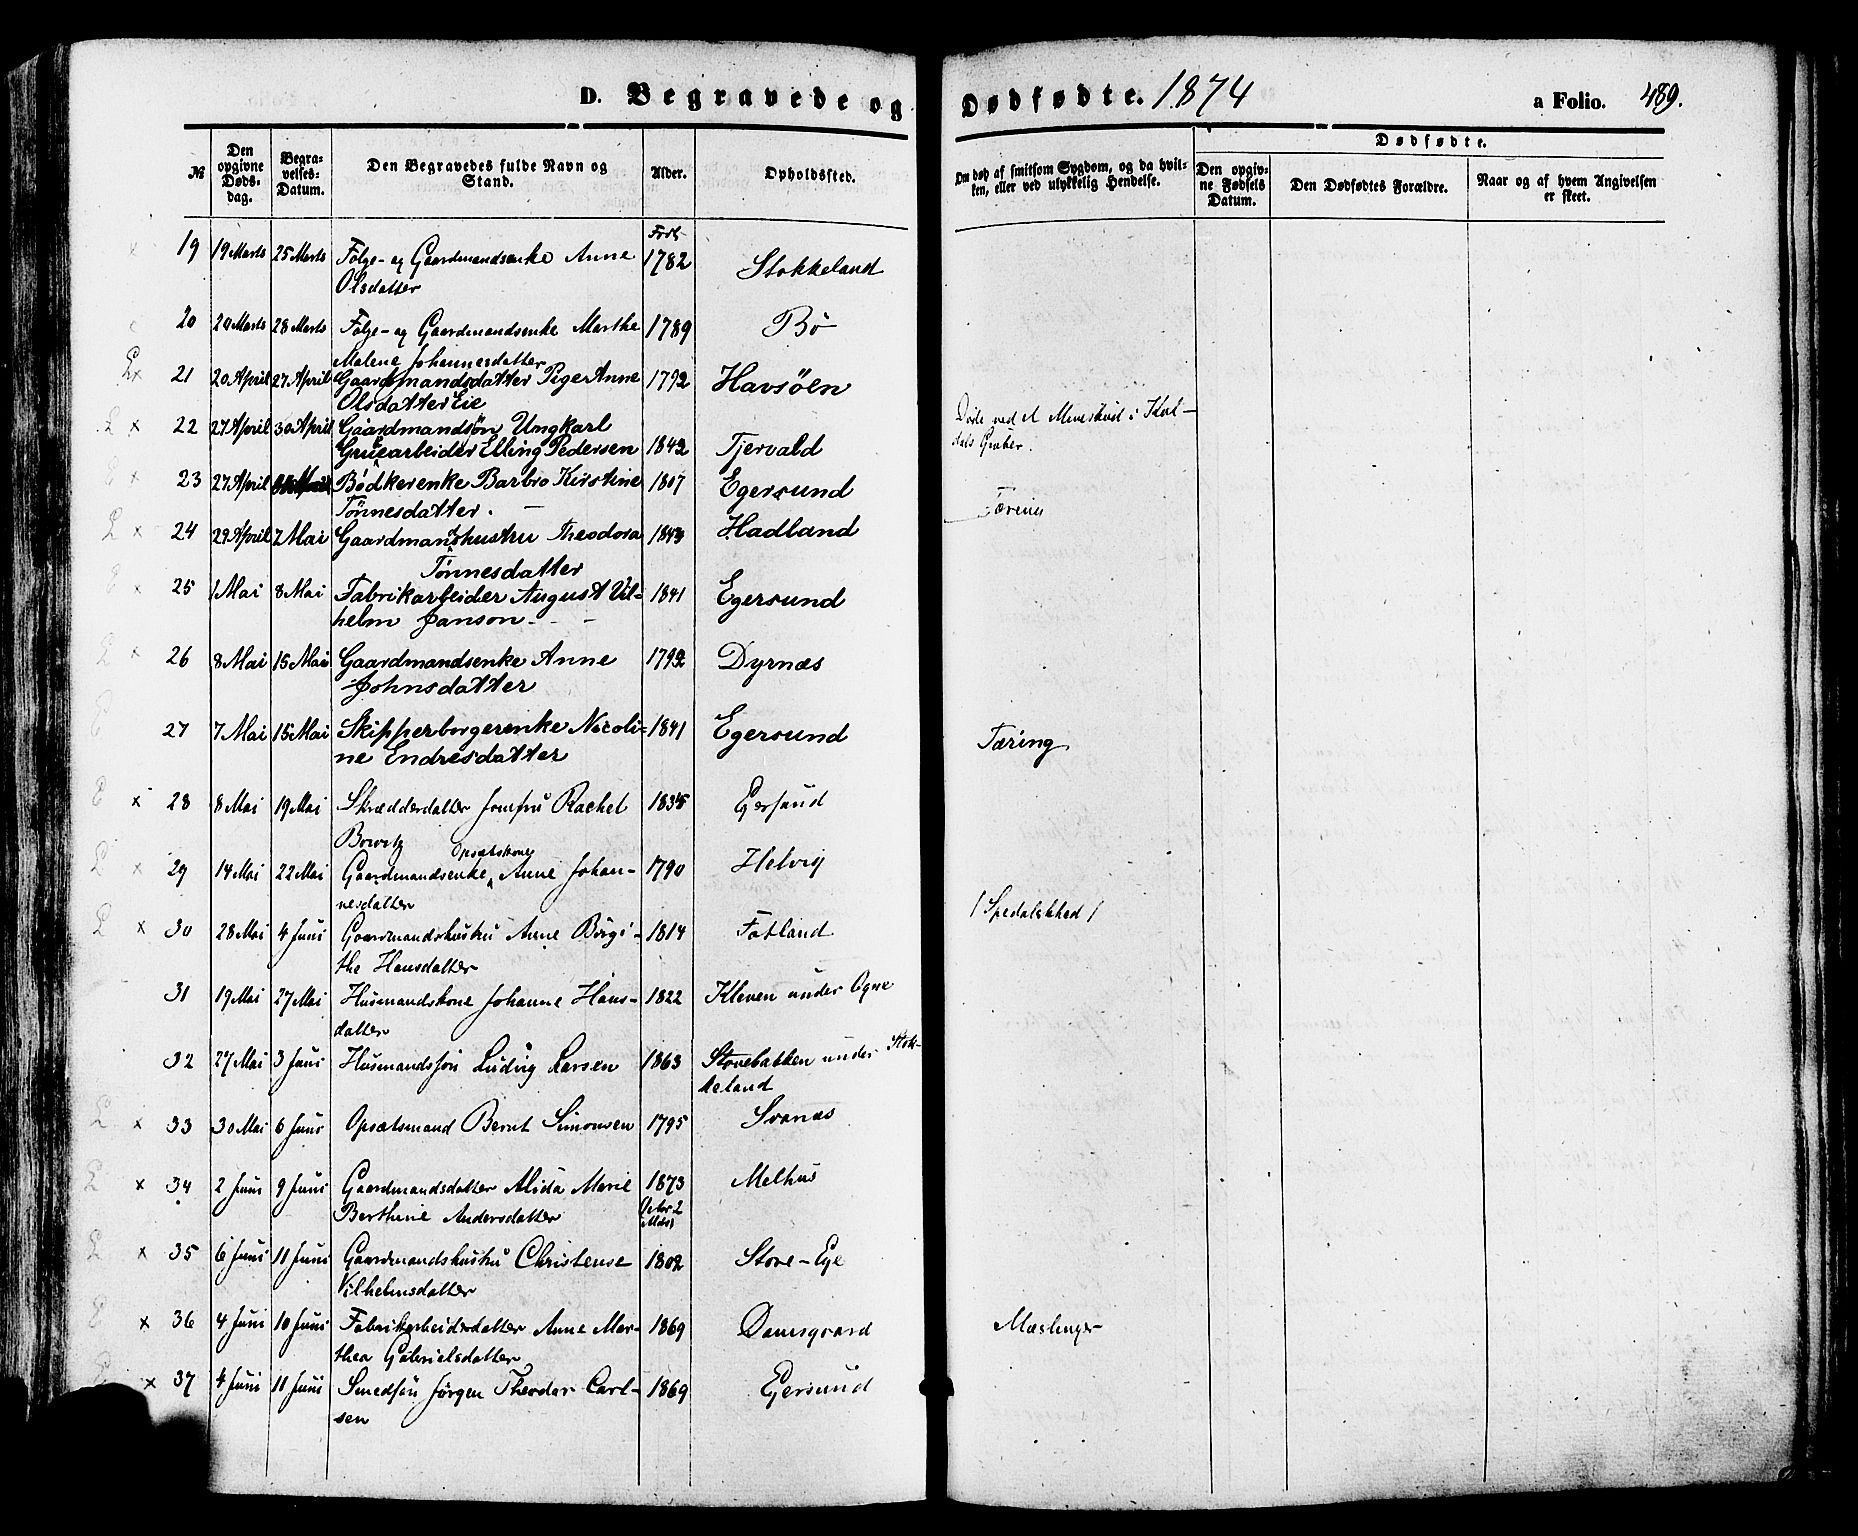 D. Begravede og Dødfødte. 1874 a Folio. 489.
Dødfødte.
№ Den opgivne Døds-dag. Begra-velses-Datum. Den Begravedes fulde Navn og Stand. Alder. Opholdssted. Om død af smitsom Sygdom, og da hvil-ken, eller ved ulykkelig Hendelse. Den opgiv-ne Fødsels Datum. Den Dødfødtes Forældre. Naar og af hvem Angivelsen er skeet.
Født
19 19 Marts 25 Marts Følge- og Gaardmandsenke Anne 1782 Stokkeland
Olsdatter
20 20 Marts 28 Marts Følge- og Gaardmandsenke Marthe 1789 Bø
Malene Johannesdatter
21 20 April 27 April Gaardmandsdatter Pige Anne 1792 Havsöen
Olsdatter Eie
22 27 April 30 April Gaardmandsøn Ungkarl
Gruearbeider Elling Pedersen 1842 Tjervald Døde ved et Mineskud i
dals Gruber.
23 27 April Bødkerenke Barbro Kirstine 1807 Egersund Tæring
Tönnesdatter. —
24 29 April 7 Mai Gaardmandshustru Theodora 1843 Hadland
Tönnesdatter
25 1 Mai 8 Mai Fabrikarbeider August Vil- 1841 Egersund
helm Janson - -
26 8 Mai 15 Mai Gaardmandsenke Anne 1792 Dyrnæs
Johnsdatter
27 7 Mai 15 Mai Skipperborgerenke Nicoli- 1841 Egersund Tæring
ne Endresdatter
28 8 Mai 19 Mai Skrædderdatter Jomfru Rachel 1835 Egersund
Opsætskone
29 14 Mai 22 Mai Gaardmandsenke Anne Johan- 1790 Helvig
nesdatter
30 28 Mai 4 Juni Gaardmandshustru Anne Birgi- 1814 Fotland / Spedalskhed /
the Hansdatter
31 19 Mai 27 Mai Husmandskone Johanne Hans- 1822 Kleven under Ogne
datter
32 27 Mai 3 Juni Husmandssøn Ludvig Larsen 1863 Stovebakken under Stok-
keland
33 30 Mai 6 Juni Opsætsmand Bernt Simonsen 1795 Svanæs
34 2 Juni 9 Juni Gaardmandsdatter Alida Marie 1873 Melhus
Berthine Andersdatter
35 6 Juni 11 Juni Gaardmandshustru Christense 1802 Store-Ege
Vilhelmsdatter
36 4 Juni 10 Juni Fabrikarbeiderdatter Anne Mar- 1869 Damsgaard Mæslinger
thea Gabrielsdatter
37 4 Juni 11 Juni Smedsøn Jörgen Theodor Carl- 1869 Egersund
sen